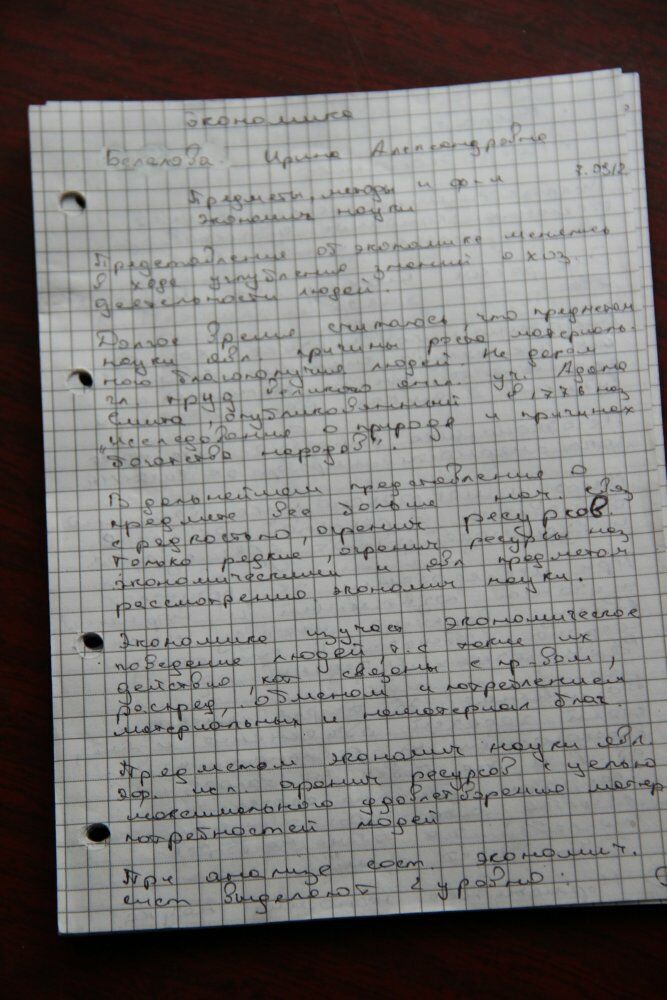 Экономика
Белалова Ирина Александровна
7.09.12
Предметы, методы и ф-и
экономич науки
Представление об экономике менялись
в ходе углубления знаний о хоз.
деятельности людей.
Долгое время считалось, что предметом
науки явл причины роста материаль-
ного благополучия людей. Не даром
гл труд великого англ. уч. Адама
Смита, опубликованный в 1776 наз
"Исследование о природе и причинах
богатства народов".
В дальнейшем представление о
предмете все больше нач. связ
с редкостью, огранич ресурсов
Только редкие, огранич ресурсы наз
экономическими и явл предметом
рассмотрения экономич науки.
Экономика изучает экономическое
поведение людей, т.е такие их
действия, кот связаны с пр-вом,
распред, обменом и потреблением
материальных и нематериал благ.
Предметом экономич науки явл
эф. исп. огранич ресурсов с целью
максимального удовлетворения матер
потребностей людей
При анализе сост. экономич.
сист выделяют 2 уровня: